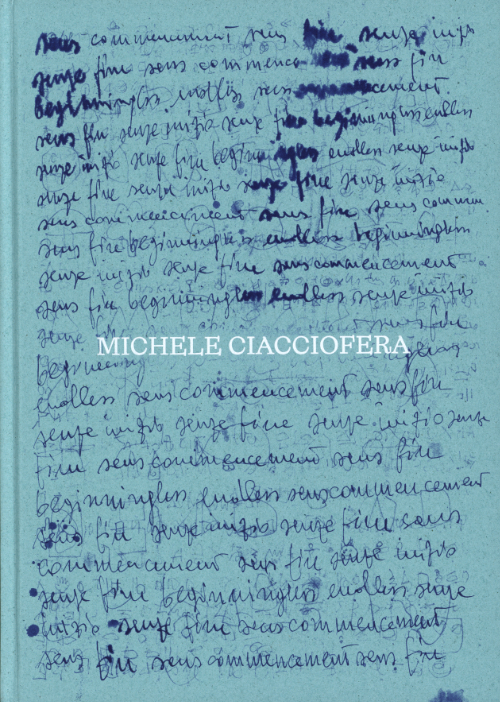 sens commencement sens fin senza inizio
senza fine sens commenceme sens fin
beginningless endless sens commencement.
sens fin senza inizio senza fine beginningless endless
senza inizio senza fine beginningless endless senza inizio
senza fine senza inizio senza fine senza inizio
sens commencement sans fin sens commen
sans fin beginningless endless beginningless
senza inizio senza fine sens commencement
sens fin beginningless endless senza inizio
senza fin
MICHELE CIACCIOFERA
beginning
endless sens commencement sens fin
senza inizio senza fine senza inizio senza
fine sens commencement sens fin
beginningless endless sens commencement
sens fin senza inizio senza fine sans
commencement sens fin senza inizio
senza fine beginningless endless senza
inizio senza fine sens commencement
sens fin sens commencement sens fin